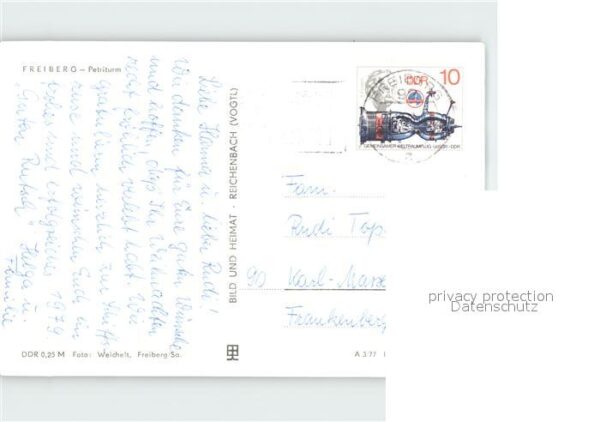 FREIBERG – Petriturm
Liebe Hanna u. lieber Rudi!
Wir danken für Eure guten Wünsche
und hoffen, daß Ihr Weihnachten
recht schön verlebt habt. Wir
gratulieren herzlich zur
und wünschen Euch ein
und erfolgreiches 1979.
"Guten Rutsch" Helga u.
Familie
BILD UND HEIMAT · REICHENBACH (VOGTL)
DDR 10
FREIBERG
GEMEINSAMER WELTRAUMFLUG UdSSR-DDR
Fam.
Rudi Top
90 Karl-Marx
Frankenberg
DDR 0,25 M Foto: Weichelt, Freiberg/Sa.
A 3 77
privacy protection
Datenschutz